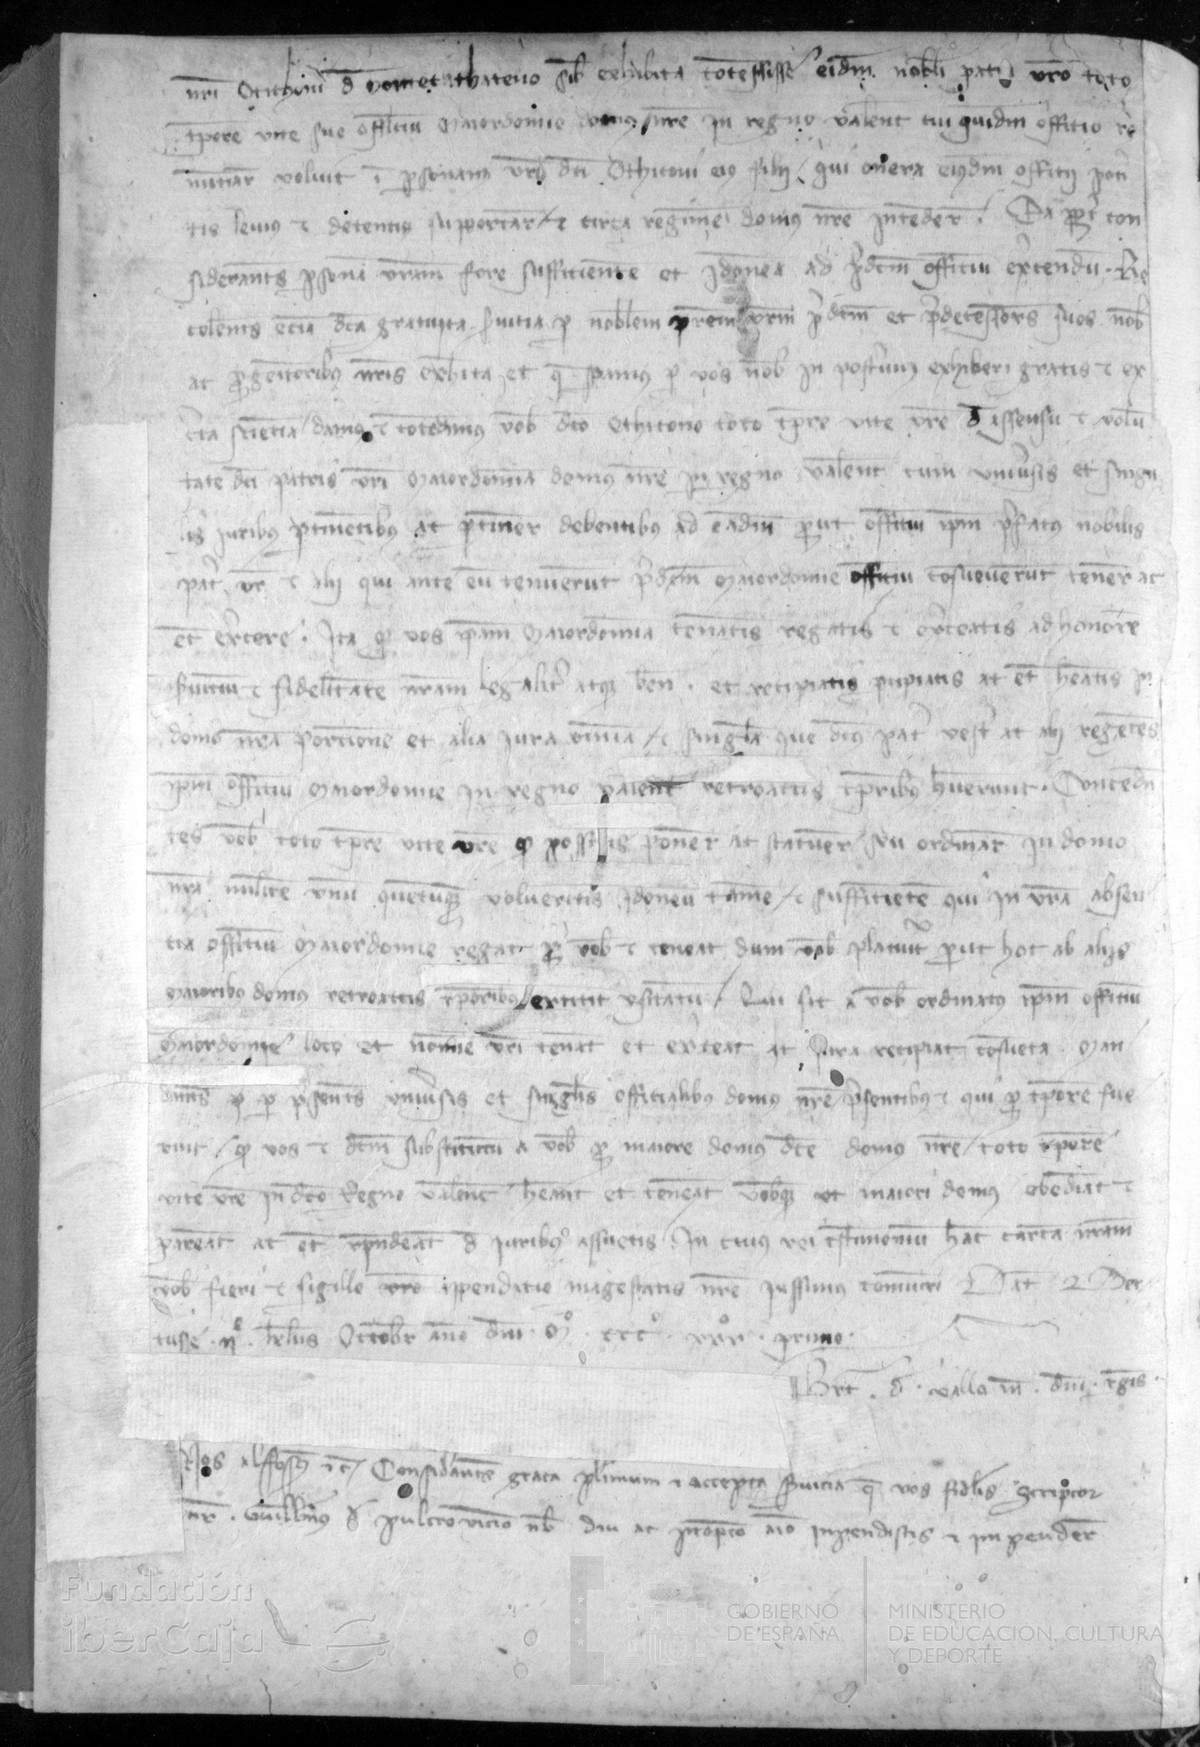 nr̃i Othoni d̃ Moncathateno sib exhibita concessisse eidm nobli patri vr̃o toto
tp̃ore vite sue officiu Maiordomie domus nr̃e in regno Valent cui quidm officio re
nunciar voluit i psonam vri dc̃i Othoni eius filij / qui onera eiusdm officij poti
tis levius & decentius supportar / & circa regimen domus nr̃e intender. Ea ppt con
siderantes psona vr̃am fore sufficiente et ydonea ad p̃dcm officiu exercendu. Re
colentes ecia dc̃a gratuita servitia p noblem prem vr̃m p̃dcm et p̃decessores suos nob
ac progenitoribus nr̃is exhibita et que spamus p vos nob in posterum exhiberi gratis & ex
cta sciencia / damus & concedimus vob dco Othono toto tp̃re vite vr̃e d̃ assensu & volu
tate dc̃i patris vr̃i Maiordomia domus nr̃e in regno Valent cum universis et singu
lis juribus ptinentibus ac ptiner debentibus ad eadm prout officiu ipm pfatus nobilis
pat vr̃ & alij qui ante eu tenuerut p̃dcm Maiordomie officiu cosueverut tener ac
et exercere. Ita q vos ipam Maiordomia teneatis regatis & exerceatis ad honore
servitiu & fidelitate nr̃am legalit atq bene. et recipiatis pcipiatis ac et heatis in
domo nr̃a porcione et alia jura omnia / & singla que dcus pat vest ac alij regentes
ipm officiu Maiordomie in regno Valent retroactis tp̃ribus huerunt. Conceden
tes vob toto tp̃re vite vr̃e q possitis poner ac statuer seu ordinar in domo
nr̃a milite unu quecuq volueritis idoneu tame / & sufficiete qui in vr̃a absen
cia officium Maiordomie regat p vob & teneat dum vob placuit prout hoc ab alijs
Maioribus domus retroactis tp̃oribus extitit usitatu / Qui sic a vob ordinatus ipm officiu
Maiordomie loco et nomine vr̃i teneat et exerceat ac jura recipiat consueta. Man
dantes p p psentes universis et singlis officialibus domus nr̃e psentibus & qui p tp̃ore fue
rint / q vos & dcm substitutu a vob p maiore domus dc̃e domus nr̃e / toto tp̃ore
vite vr̃e in dco Regno Valent heant et teneat vobq ut maiori domus obediat &
pareat ac et respondeat d̃ juribus assuetis. In cuius rei testimoniu hac carta nr̃am
vob fieri & sigillo nr̃o ipendatio magestatis nr̃e jussimus comuniri Dat Der
tuse . IIº kls Octobr ano dni Mº . CCCº . XXXº . primo.
Bñt . d̃ . vallo m . dni . regis.
Nos alfossus &c̃ / Considantes grata plimum & accepta servicia q vos fidelis scriptor
nr̃ . Guillms d̃ pulcrovicino nob diu ac prompto aio inpendistis & impender
Fundación
iberCaja
GOBIERNO
DE ESPAÑA
MINISTERIO
DE EDUCACIÓN, CULTURA
Y DEPORTE